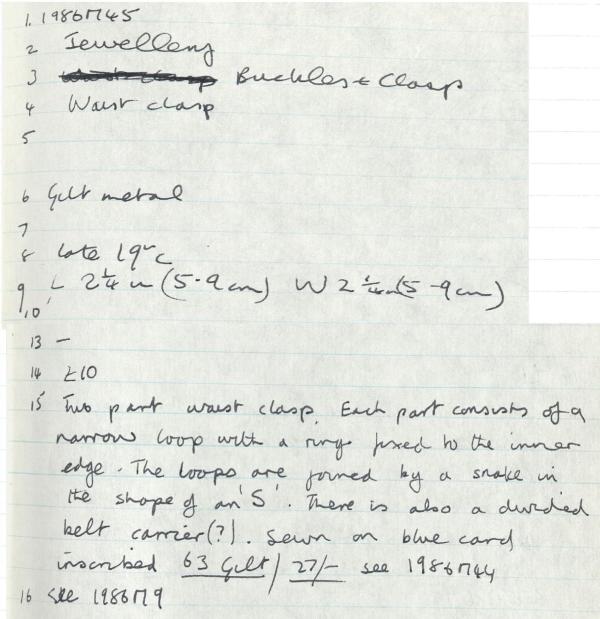 1. 1986M45
2 Jewellery
3 Buckles + Clasp
4 Waist clasp
5
6 Gilt metal
7
8 late 19th C
9 L 2 1/4 in (5.9cm) W 2 1/4 in (5.9cm)
10
13 -
14 £10
15 Two part waist clasp. Each part consists of a
narrow loop with a ring fixed to the inner
edge. The loops are joined by a snake in
the shape of an 'S'. There is also a divided
belt carrier(?). Sewn on blue card
inscribed 63 Gilt / 27/- see 1986M44
16 see 1986M9